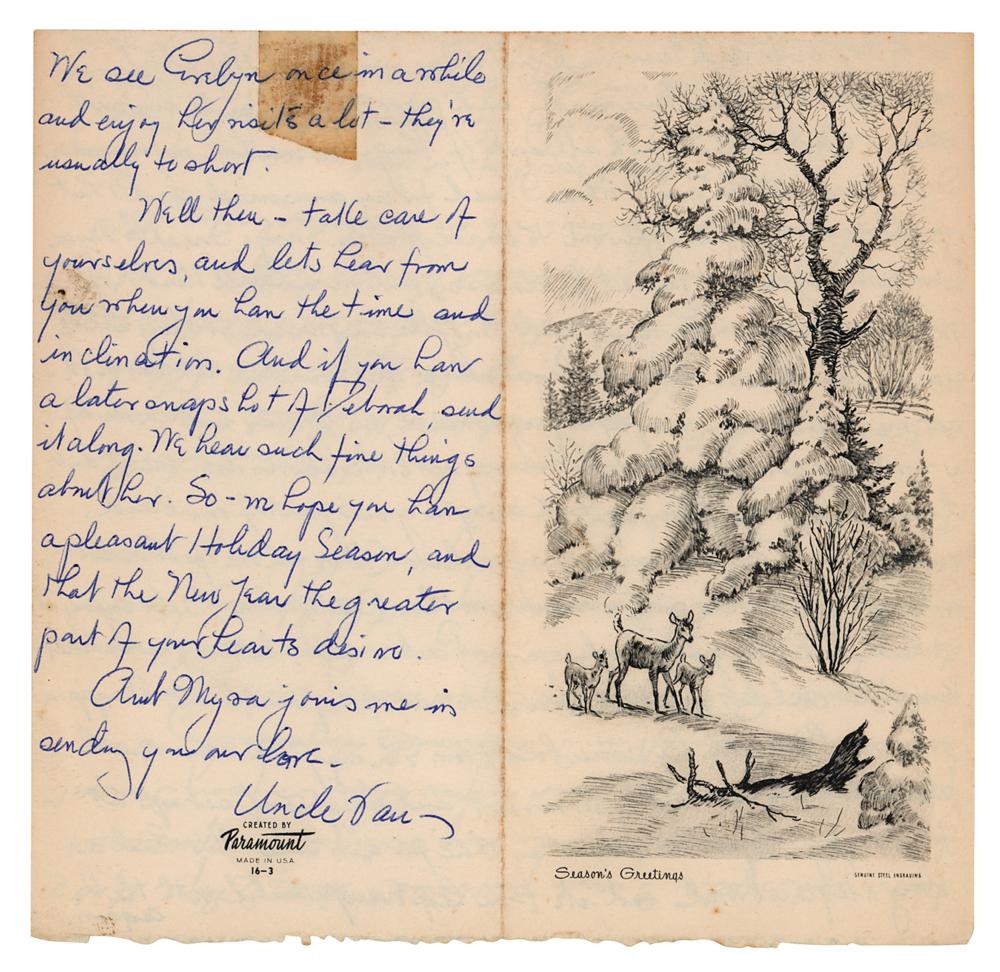 We see Evelyn once in a while
and enjoy her visits a lot – they're
usually to short.
Well then – take care of
yourselves, and lets hear from
you when you have the time and
inclination. And if you have
a later snapshot of Deborah, send
it along. We hear such fine things
about her. So – we hope you have
a pleasant Holiday Season, and
that the New Year the greater
part of your hearts desire.
Aunt Myra joins me in
sending you our love –
Uncle
CREATED BY
Paramount
MADE IN U.S.A.
16–3
Season's Greetings
GENUINE STEEL ENGRAVING